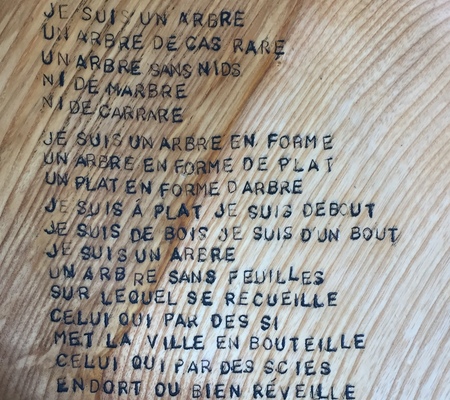 JE SUIS UN ARBRE
UN ARBRE DE CAS RARE
UN ARBRE SANS NIDS
NI DE MARBRE
NI DE CARRARE
JE SUIS UN ARBRE EN FORME
UN ARBRE EN FORME DE PLAT
UN PLAT EN FORME D'ARBRE
JE SUIS À PLAT JE SUIS DEBOUT
JE SUIS DE BOIS JE SUIS D'UN BOUT
JE SUIS UN ARBRE
UN ARBRE SANS FEUILLES
SUR LEQUEL SE RECUEILLE
CELUI QUI PAR DES SI
MET LA VILLE EN BOUTEILLE
CELUI QUI PAR DES SCIES
ENDORT OU BIEN RÉVEILLE